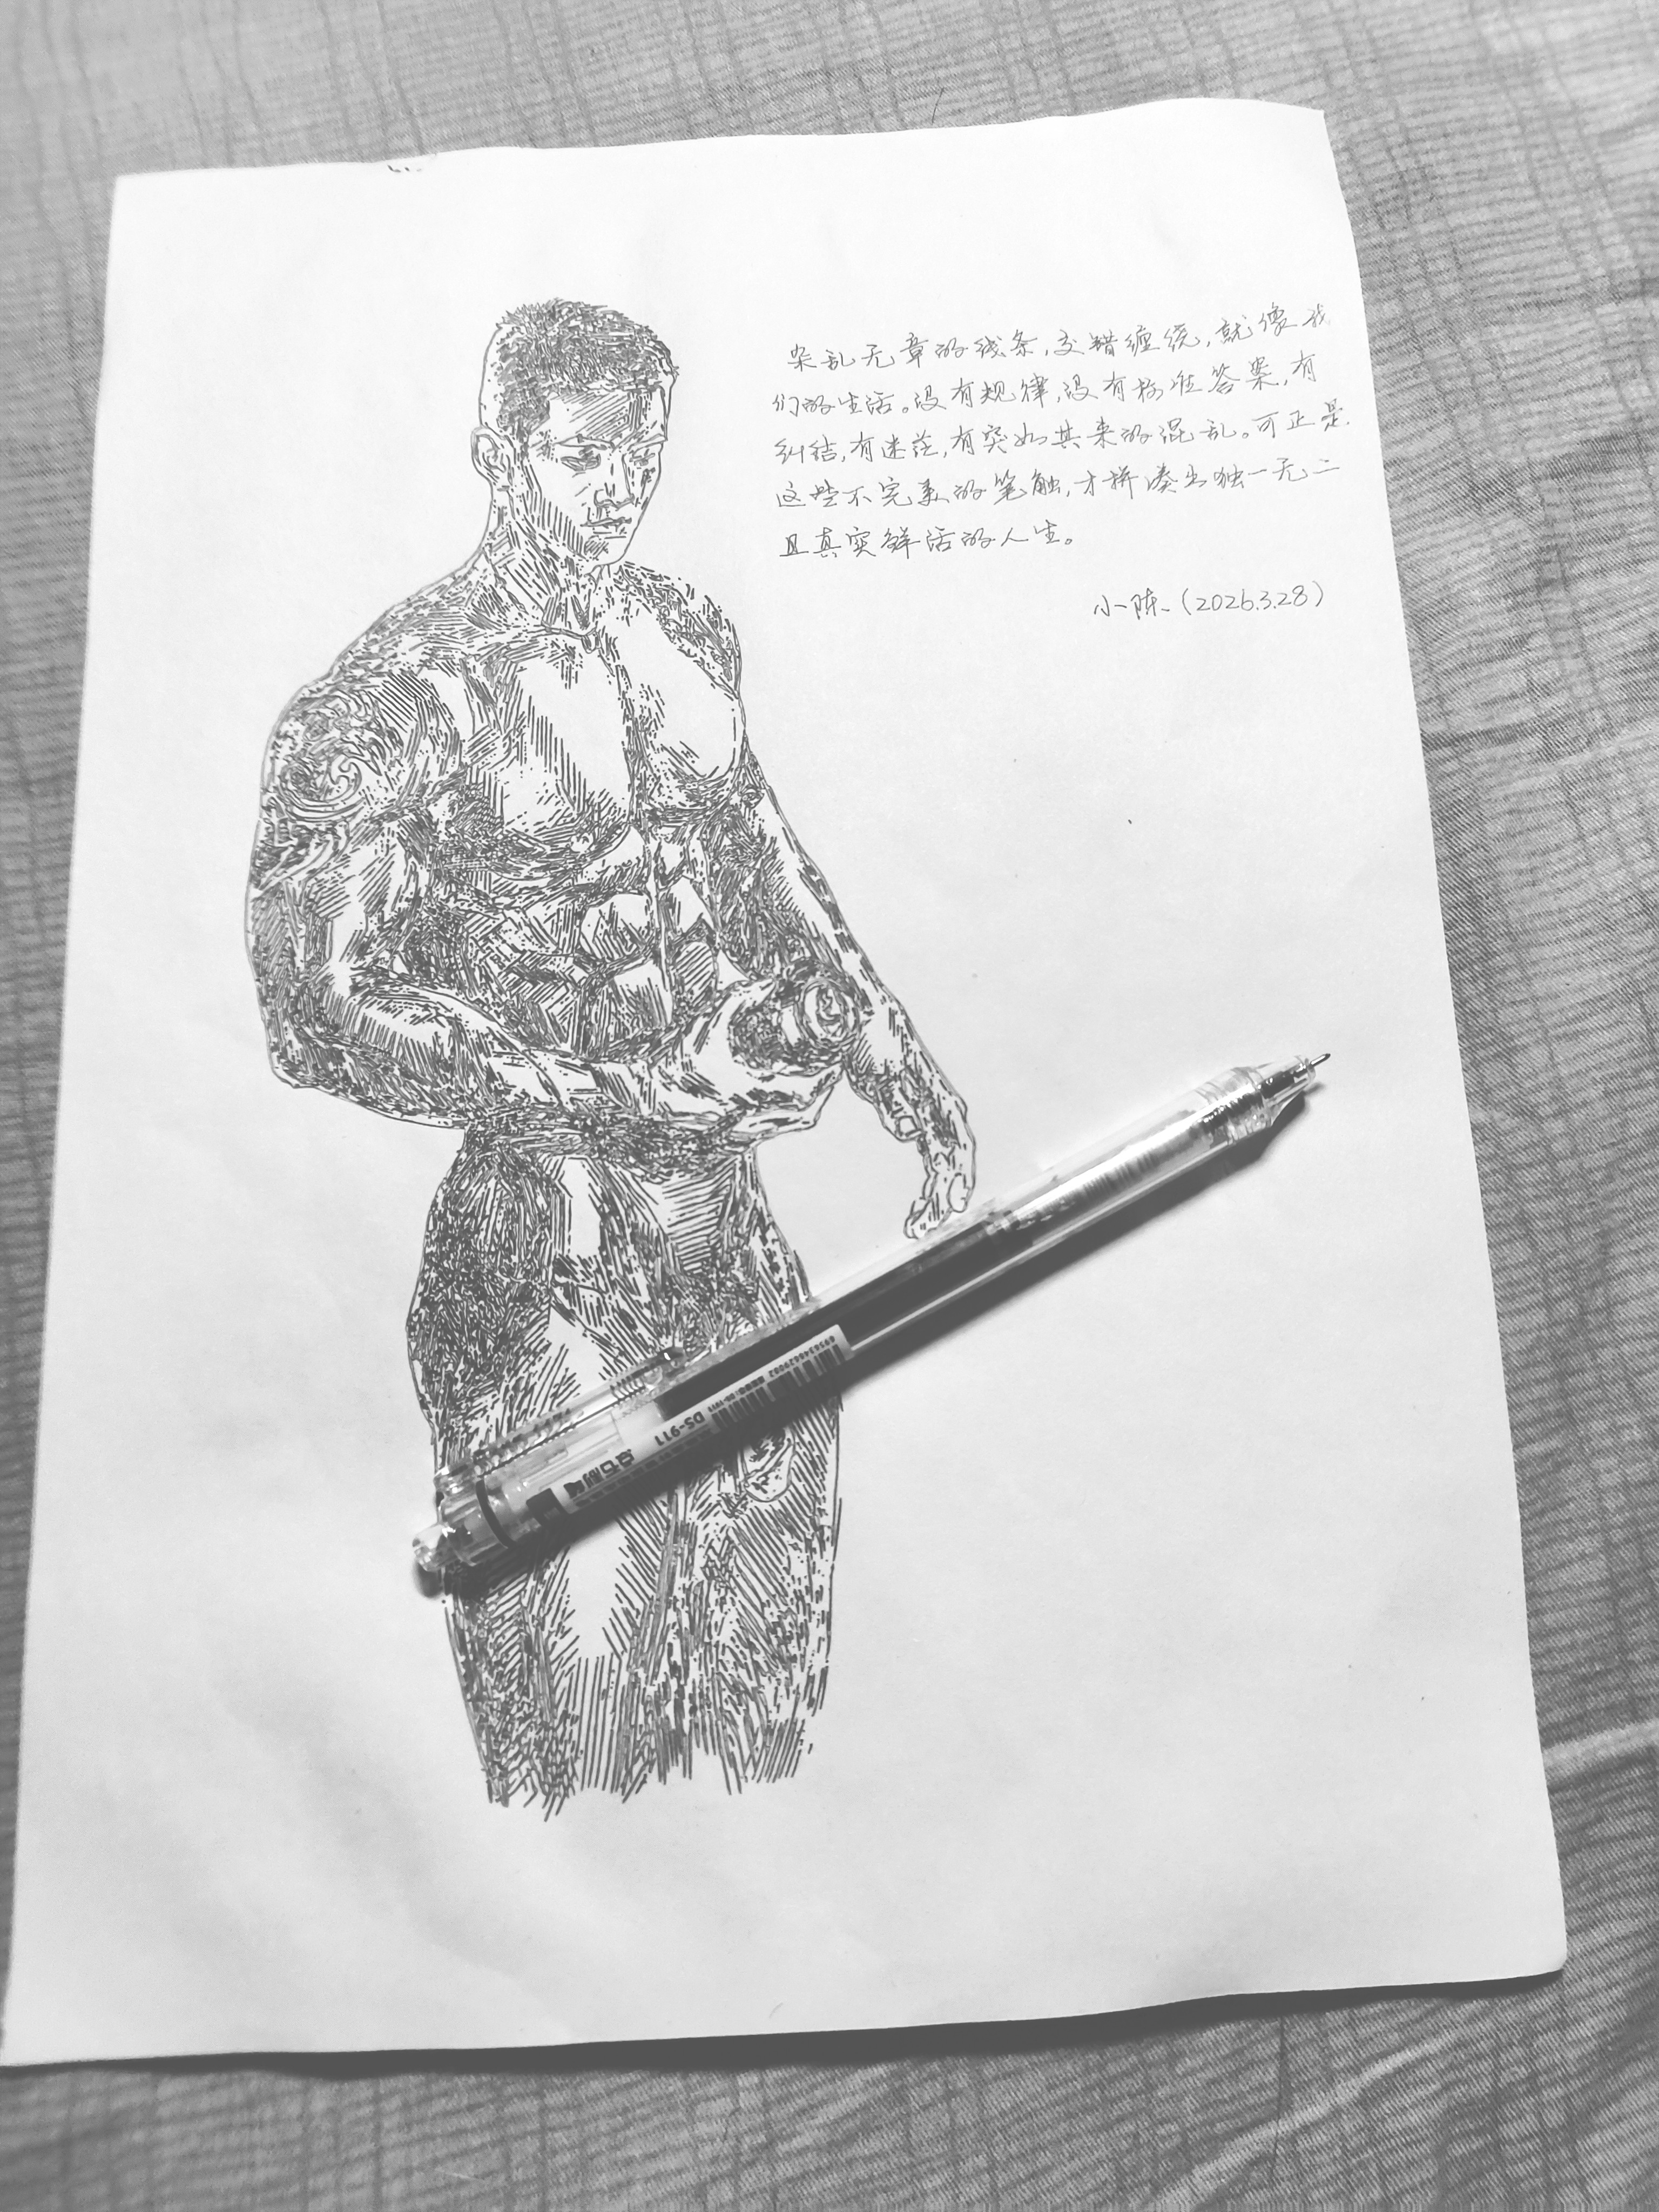 杂乱无章的线条,交错缠绕,就像我
们的生活。没有规律,没有标准答案,有
纠结,有迷茫,有突如其来的混乱。可正是
这些不完美的笔触,才拼凑出独一无二
且真实鲜活的人生。
小陈(2026.3.28)
DS-911